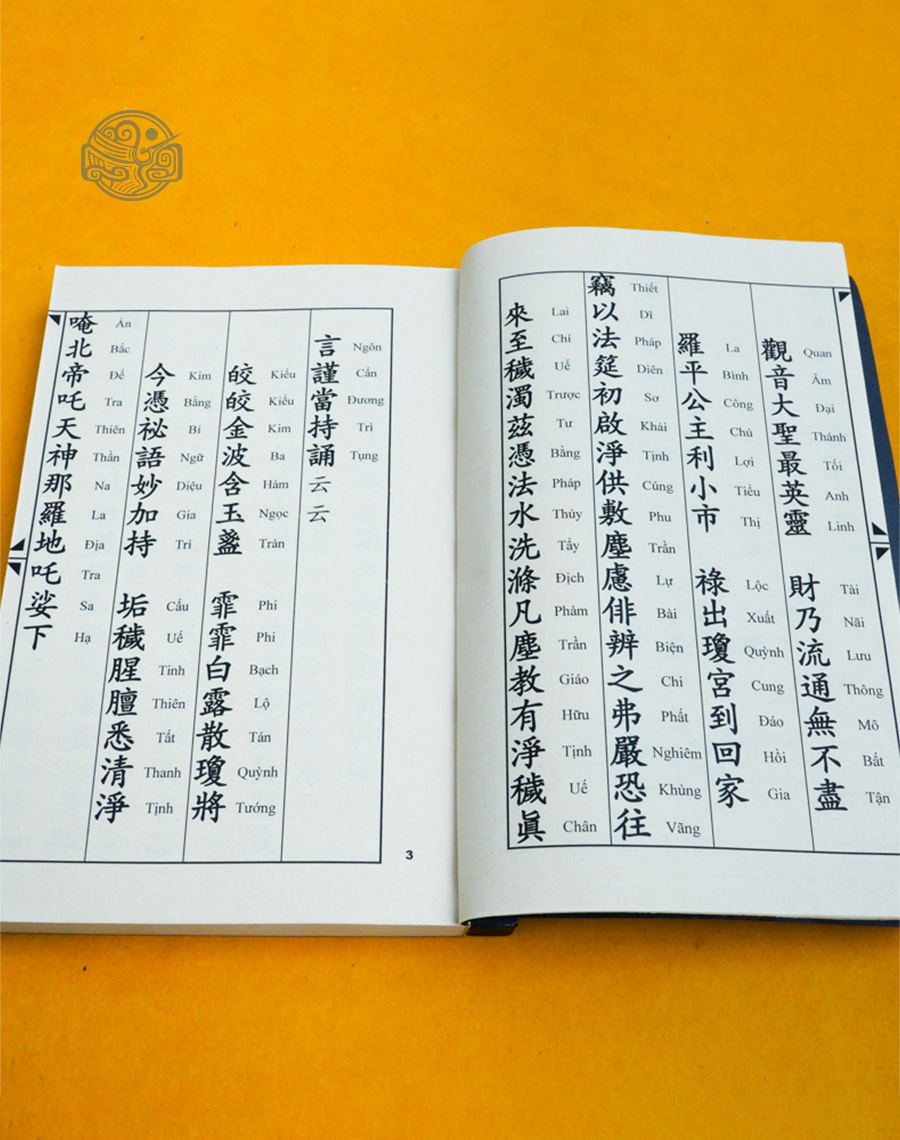 觀音大聖最英靈 財乃流通無不盡
Quan Âm Đại Thánh Tối Anh Linh Tài Nãi Lưu Thông Mô Bất Tận
羅平公主利小市 祿出瓊宮到回家
La Bình Công Chủ Lợi Tiểu Thị Lộc Xuất Quỳnh Cung Đáo Hồi Gia
竊以法筵初啟淨供敷塵慮俳辨之弗嚴恐往
Thiết Dĩ Pháp Diên Sơ Khải Tịnh Cúng Phu Trần Lự Bài Biện Chi Phất Nghiêm Khủng Vãng
來至穢濁茲憑法水洗滌凡塵教有淨穢眞
Lai Chí Uế Trược Tư Bằng Pháp Thủy Tẩy Địch Phàm Trần Giáo Hữu Tịnh Uế Chân
言謹當持誦云云
Ngôn Cẩn Đương Trì Tụng
皎皎金波含玉盞 霏霏白露散瓊將
Kiểu Kiểu Kim Ba Hàm Ngọc Trản Phi Phi Bạch Lộ Tán Quỳnh Tướng
今憑祕語妙加持 垢穢腥膻悉清淨
Kim Bằng Bí Ngữ Diệu Gia Trì Cấu Uế Tinh Thiên Tất Thanh Tịnh
唵北帝吒天神那羅地吒娑下
Án Bắc Đế Tra Thiên Thần Na La Địa Tra Sa Hạ
3